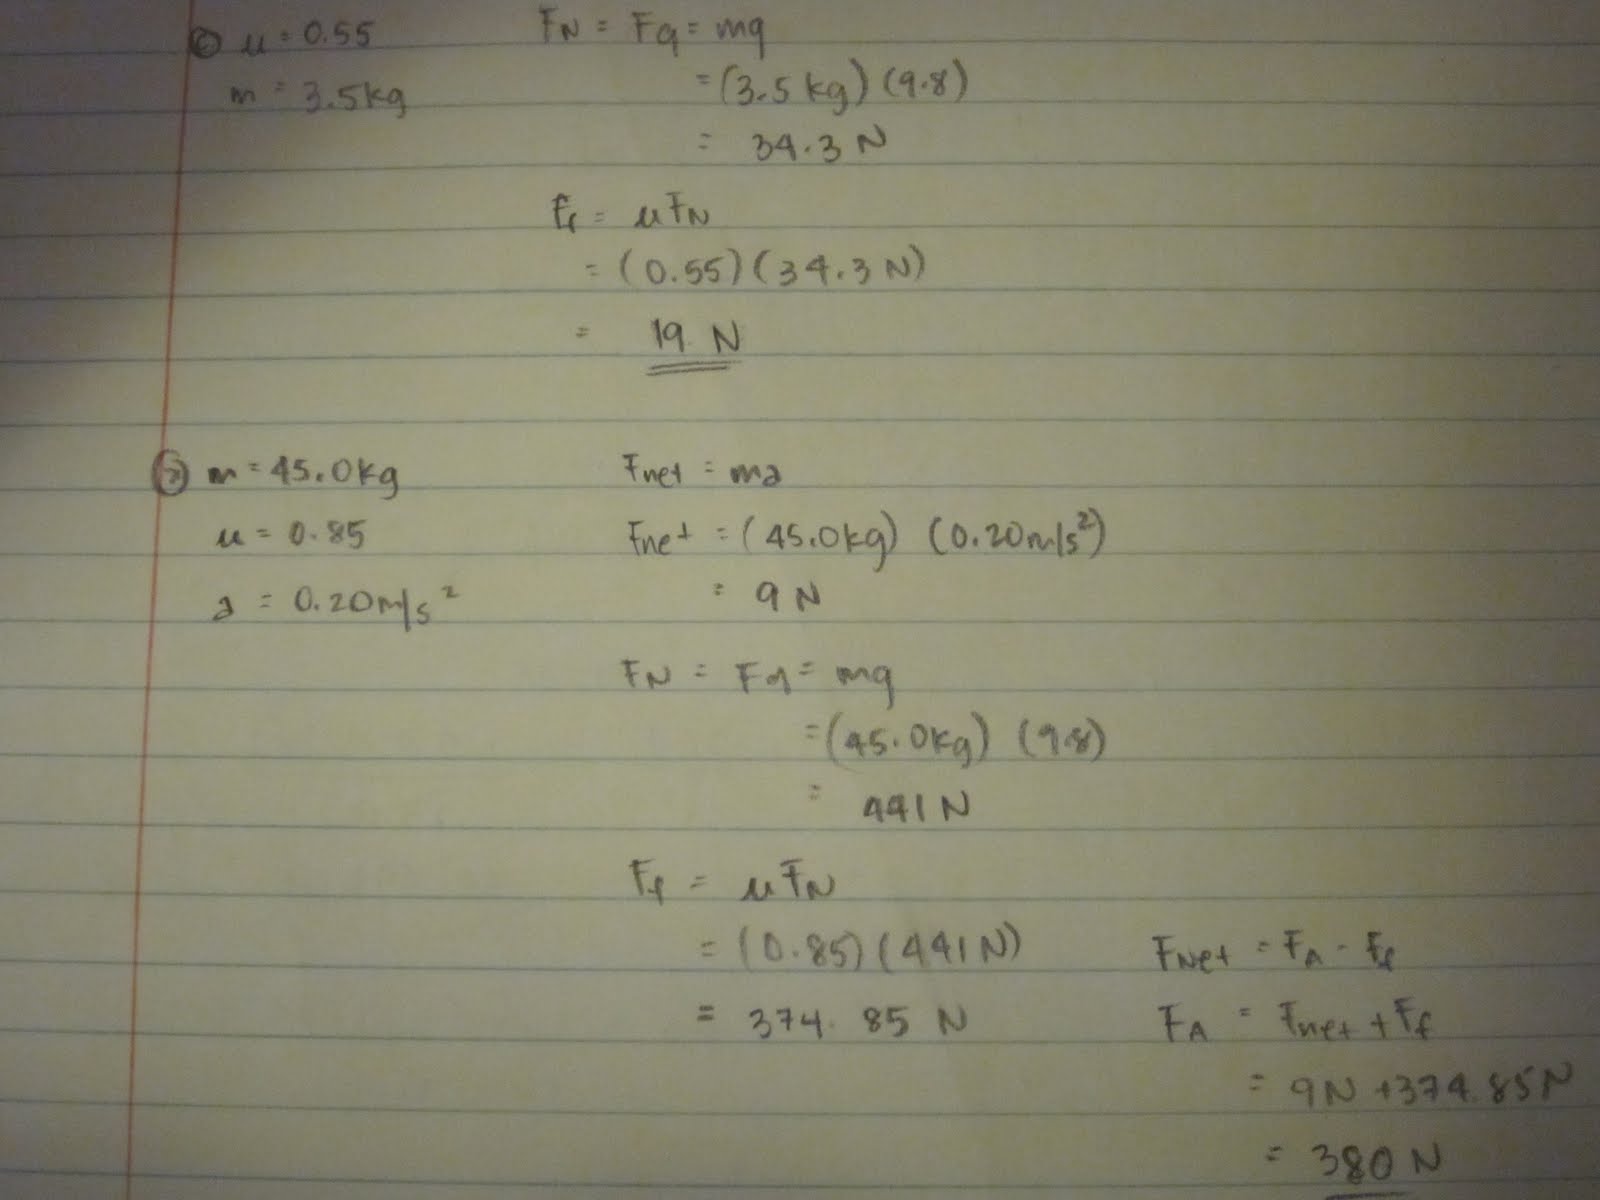 ⑥ μ = 0.55
m = 3.5kg
FN = Fg = mg
= (3.5 kg) (9.8)
= 34.3 N
Ff = μFN
= (0.55) (34.3 N)
= 19 N
m = 45.0kg
μ = 0.85
a = 0.20m/s²
Fnet = ma
Fnet = (45.0kg) (0.20m/s²)
= 9 N
FN = Fg = mg
= (45.0kg) (9.8)
= 441 N
Ff = μFN
= (0.85) (441 N)
= 374.85 N
FNet = FA - Ff
FA = Fnet + Ff
= 9N + 374.85N
= 380 N